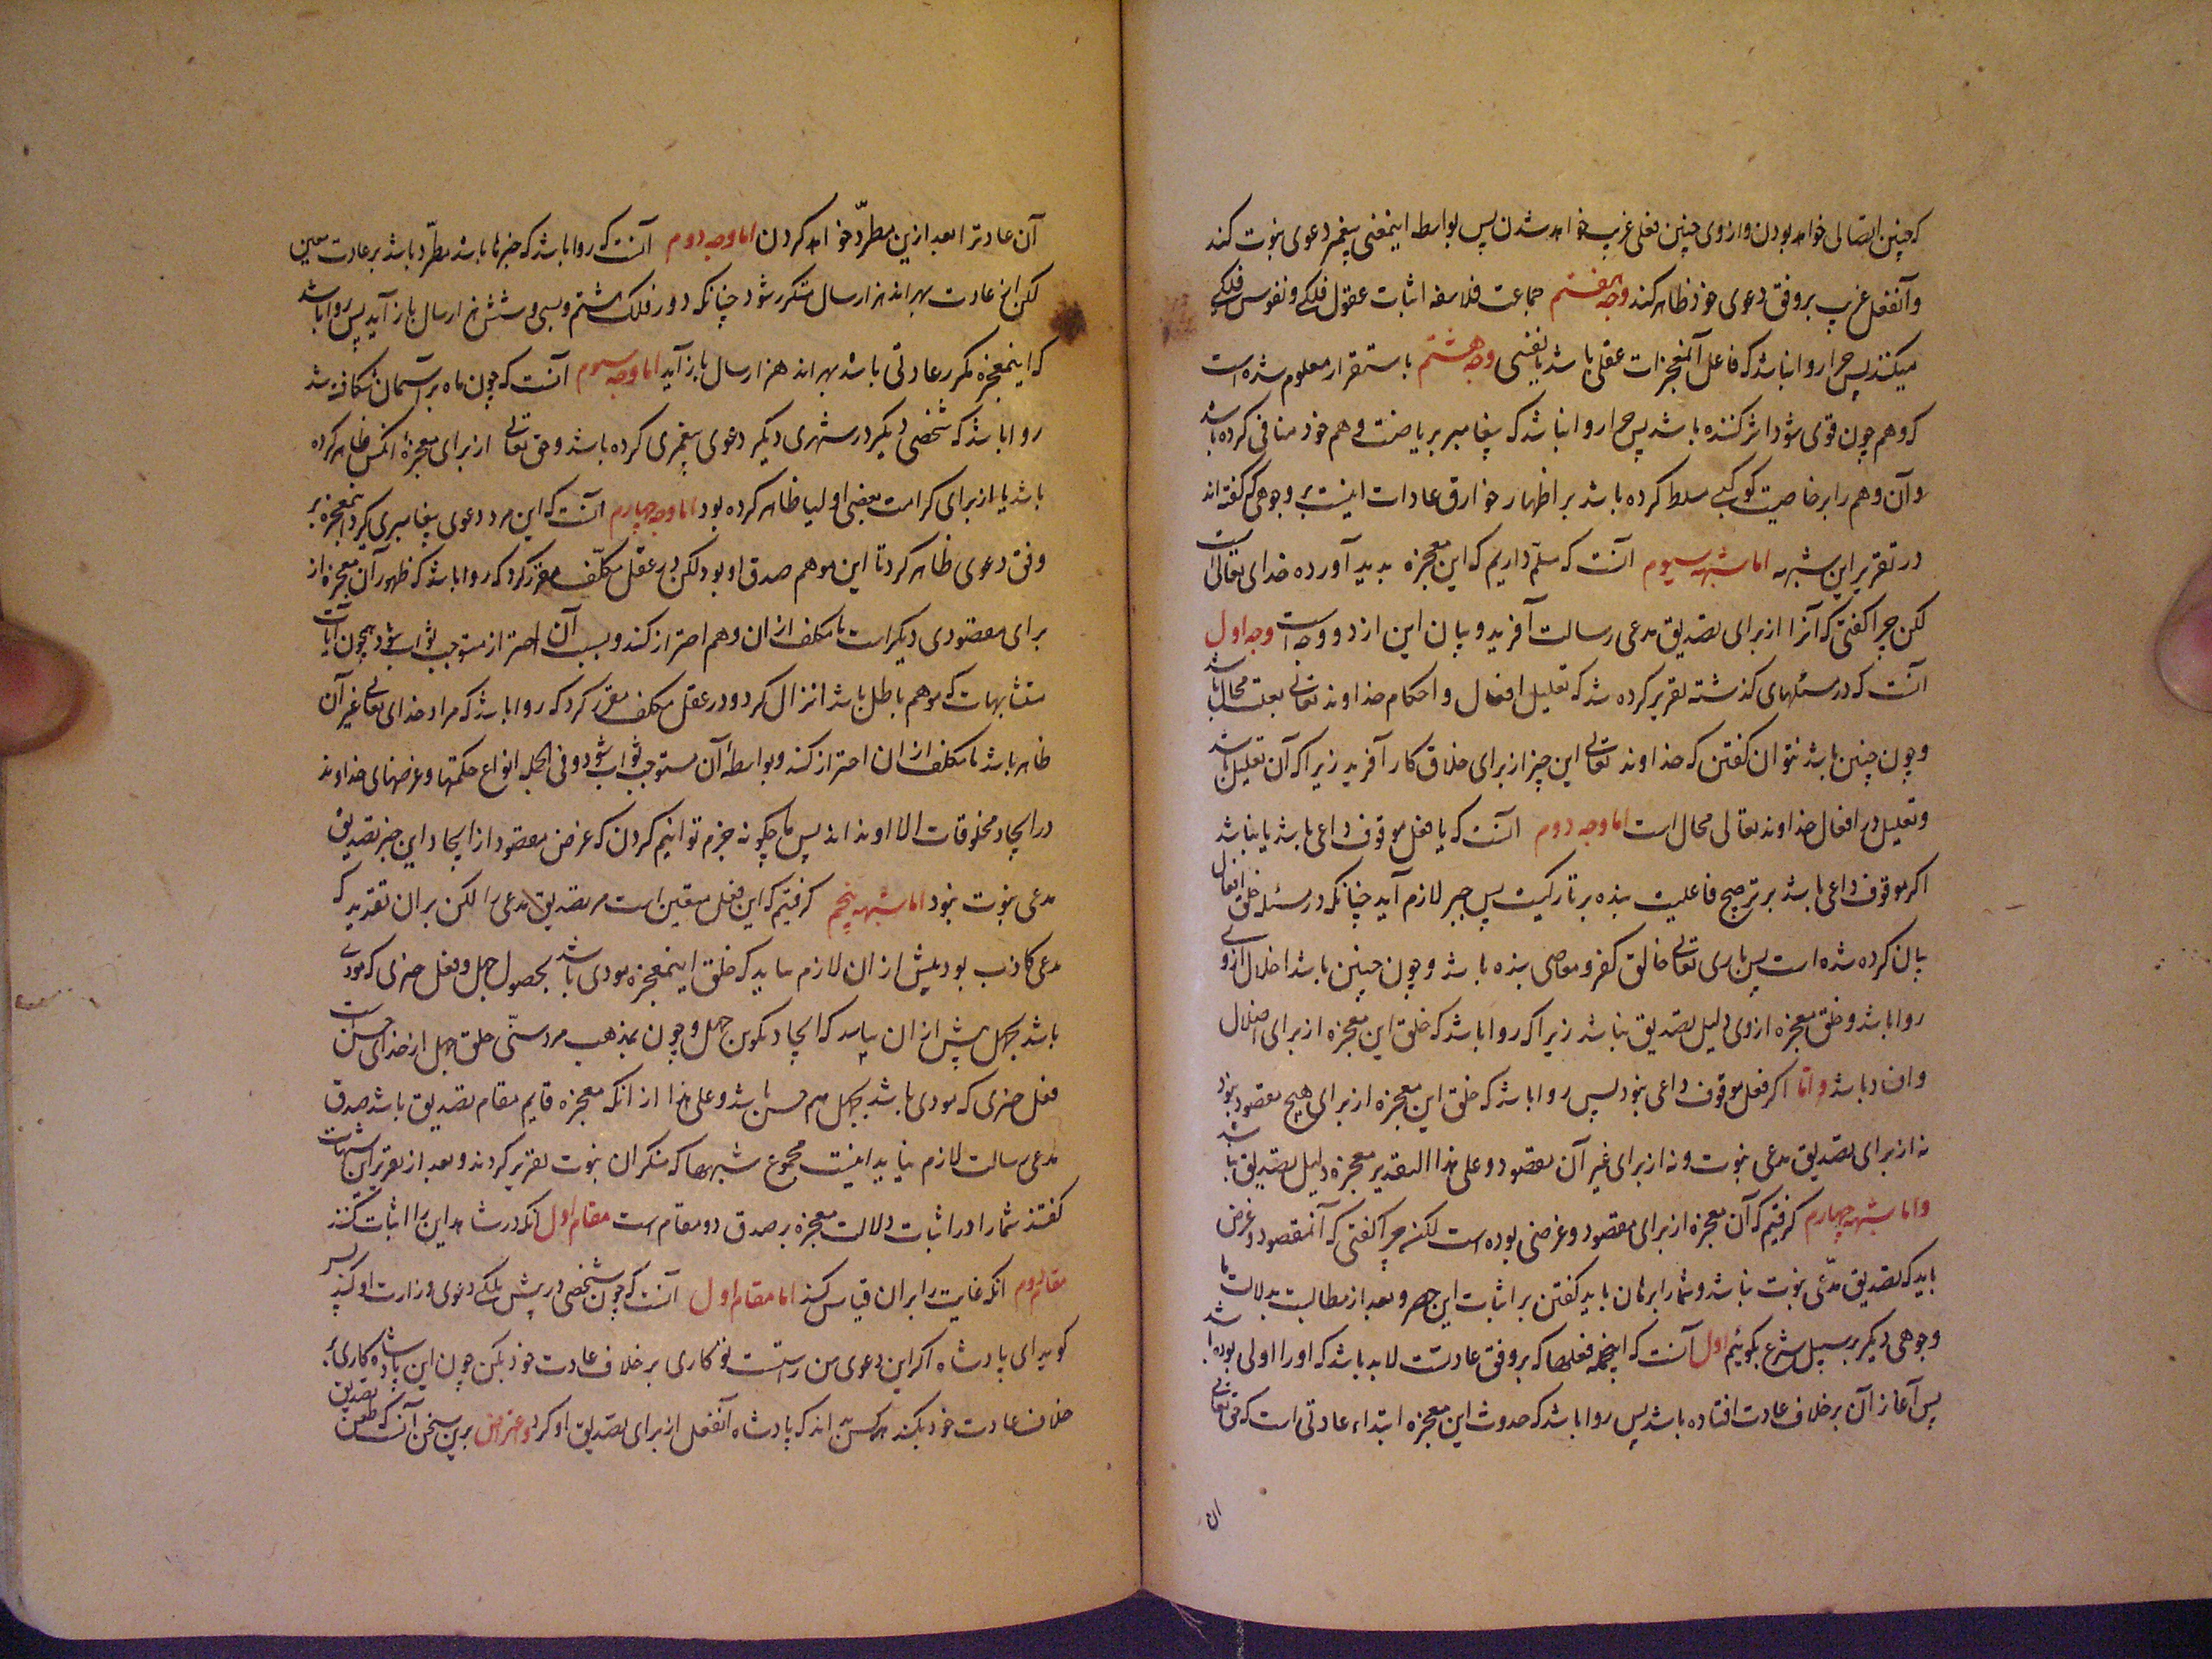 که چنین اتصالی خواهد بودن و از وی چنین فعلی غریب خواهد شدن پس بواسطه اینمعنی پیغمبر دعوی نبوت کند
و آنفعل غریب بر وفق دعوی خود ظاهر کند وجه هفتم جماعت فلاسفه اثبات عقول فلکی و نفوس فلکی
میکنند پس چرا روا نباشد که فاعل آنمعجزات عقلی باشد یا نفسی وجه هشتم باستقرار معلوم شده است
که وهم چون قوی شود اثر کننده باشد پس چرا روا نباشد که پیغامبر بریاضت وهم خود صافی کرده باشد
و آن وهم را بر خاصیت کوکبی مسلط کرده باشد بر اظهار خوارق عادات اینست بر وجوهی که گفته‌اند
در تقریر این شبهه اما شبهه سیوم آنست که مسلم داریم که این معجزه پدید آورده خدای تعالی است
لکن چرا گفتی که آنرا از برای تصدیق مدعی رسالت آفرید و بیان این از دو وجه است وجه اول
آنست که در مسئلهای گذشته تقریر کرده شد که تعلیل افعال و احکام خداوند تعالی بعلت محال باشد
و چون چنین باشد نتوان گفتن که خداوند تعالی این چیز از برای فلان کار آفرید زیرا که آن تعلیل باشد
و تعلیل در افعال خداوند تعالی محال است اما وجه دوم آنست که یا فعل موقوف داعی باشد یا نباشد
اگر موقوف داعی باشد بر ترجیح فاعلیت بنده بر تارکیت پس جبر لازم آید چنانکه در مسئله خلق افعال
بیان کرده شده است پس باری تعالی خالق کفر و معاصی بنده باشد و چون چنین باشد اضلال از وی
روا باشد و خلق معجزه از وی دلیل تصدیق نباشد زیرا که روا باشد که خلق این معجزه از برای اضلال
و افساد باشد و اما اگر فعل موقوف داعی نبود پس روا باشد که خلق این معجزه از برای هیچ مقصود نبود
نه از برای تصدیق مدعی نبوت و نه از برای غیر آن مقصود و علی هذا التقدیر معجزه دلیل تصدیق نباشد
و اما شبهه چهارم گرفتیم که آن معجزه از برای مقصود و غرضی بوده است لکن چرا گفتی که آنمقصود و غرض
باید که تصدیق مدعی نبوت باشد و شما را برهان باید گفتن بر اثبات این حصر و بعد از مطالبت بدلالت ما
وجوهی دیگر بر سبیل شرع بگوئیم اول آنست که اینجمله فعلها که بر وفق عادتست لابد باشد که او را اولی بوده باشد
پس آغاز آن بر خلاف عادت افتاده باشد پس روا باشد که حدوث این معجزه ابتداء عادتی است که حق تعالی
ان
آن عادت را بعد ازین مطرد خواهد کردن اما وجه دوم آنست که روا باشد که چیزها باشد مطرد باشد بر عادت معین
لکن آن عادت بهر اند هزار سال متکرر شود چنانکه دور فلک هشتم و بسی و شش هزار سال باز آید پس روا باشد
که اینمعجزه مکرر عادتی باشد بهر اند هزار سال باز آید اما وجه سیوم آنست که چون ماه بر آسمان شکافته شد
روا باشد که شخصی دیگر در شهری دیگر دعوی پیغمبری کرده باشد و حق تعالی از برای معجزه آنکس ظاهر کرده
باشد یا از برای کرامت بعضی اولیا ظاهر کرده بود اما وجه چهارم آنست که این مرد دعوی پیغامبری کرد اینمعجزه بر
وفق دعوی ظاهر کرد تا این موهم صدق او بود لکن در عقل مکلف مقرر کرد که روا باشد که ظهور آن معجزه از
برای مقصودی دیگر است تا مکلف از آن وهم احتراز کند و بسبب آن احتراز مستوجب ثواب شود همچون آیات
متشابهات که موهم باطل باشد انزال کرد و در عقل مکلف مقرر کرد که روا باشد که مراد خدای تعالی غیر آن
ظاهر باشد تا مکلف از آن احتراز کند و بواسطه آن مستوجب ثواب شود و فی الجمله انواع حکمتها و غرضهای خداوند
در ایجاد مخلوقات الا او نداند پس ما چگونه جزم توانیم کردن که غرض مقصود از ایجاد این چیز تصدیق
مدعی نبوت بود اما شبهه پنجم گرفتیم که این فعل معین است مر تصدیق مدعی را لکن بر آن تقدیر که
مدعی کاذب بود بیش از آن لازم نیاید که خلق اینمعجزه مودی باشد بحصول جهل و فعل چیزی که مودی
باشد بجهل بیش از آن نیاید که ایجاد و تکوین جهل و چون بمذهب مرد سنی خلق جهل از خدای حسن است
فعل چیزی که مودی باشد بجهل هم حسن باشد و علی هذا از آنکه معجزه قایم مقام تصدیق باشد صدق
مدعی رسالت لازم نیاید اینست مجموع شبهها که منکران نبوت تقریر کردند و بعد از تقریر این شبهات
گفتند شما را در اثبات دلالت معجزه بر صدق دو مقام است مقام اول آنکه در شاهد این را اثبات کنند
مقام دوم آنکه غایب را بر آن قیاس کنند اما مقام اول آنست که چون شخصی در پیش ملکی دعوی وزارت او کند پس
گوید ای پادشاه اگر این دعوی من راستست تو کاری بر خلاف عادت خود بکن چون این پادشاه کاری
خلاف عادت خود بکند هر کس بداند که پادشاه آنفعل از برای تصدیق او کرد و اعتراض برین سخن آنست که طعن تصدیق